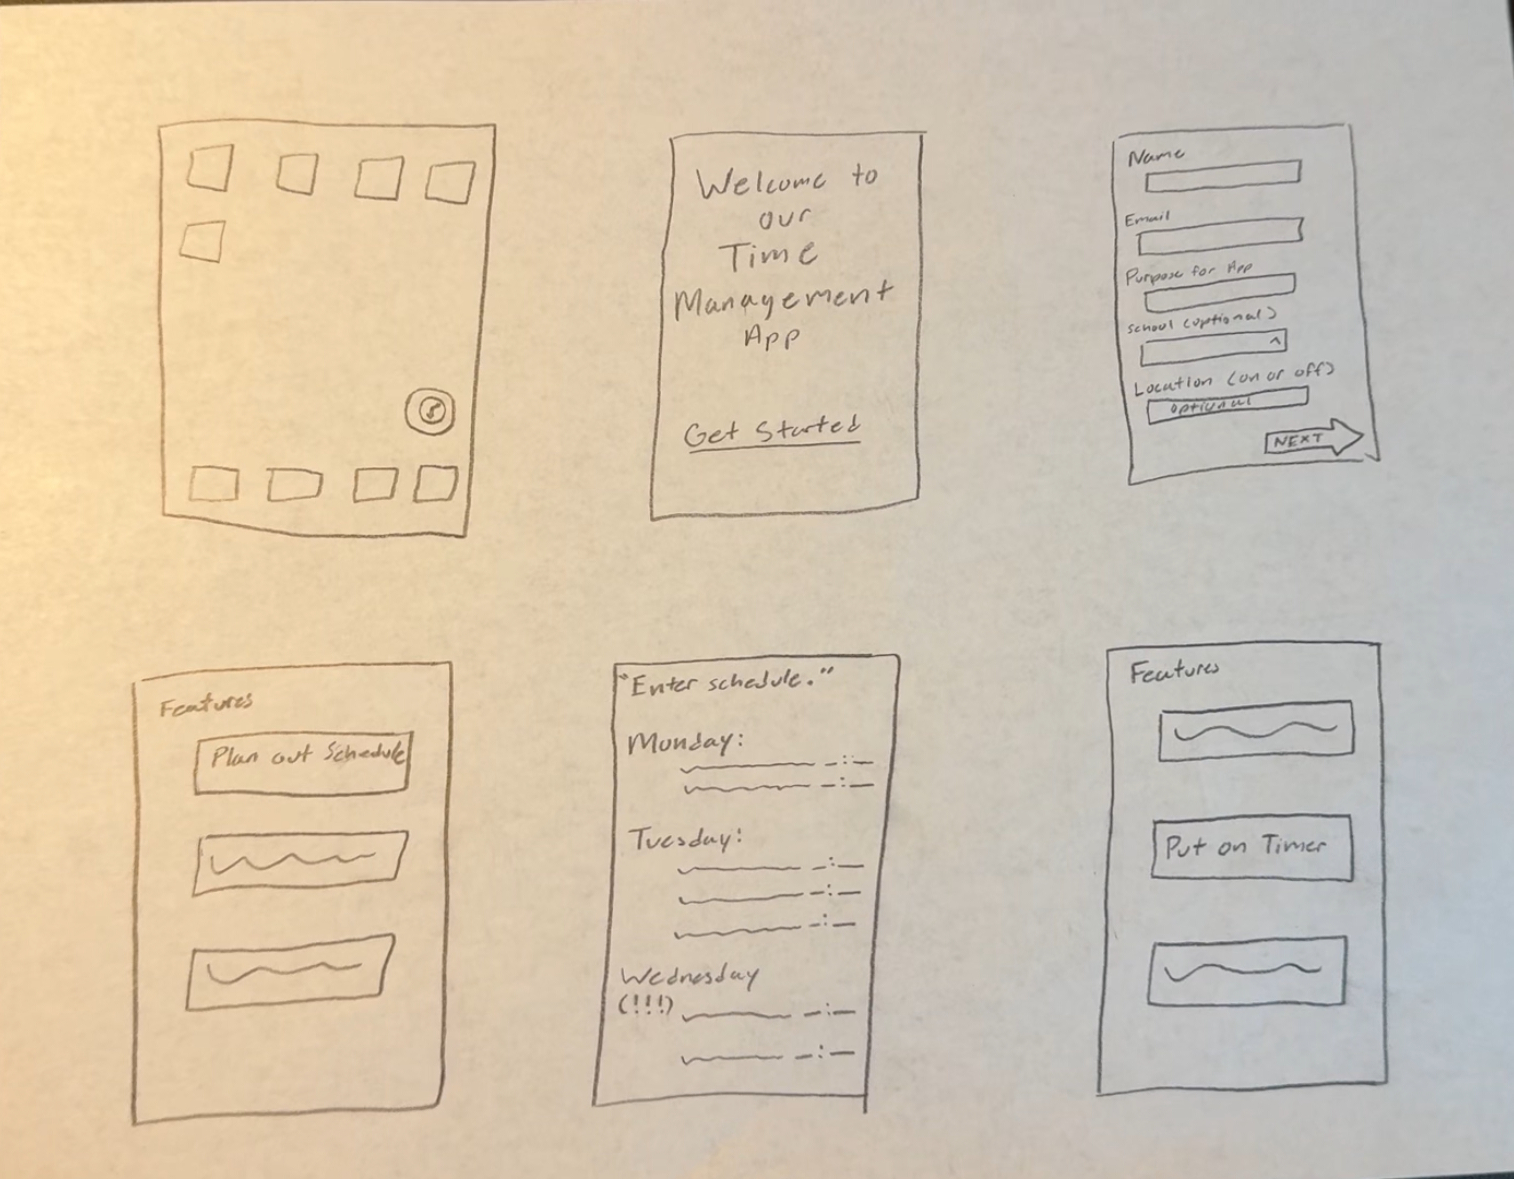 Welcome to
our
Time
Management
App
Get Started
Name
Email
Purpose for App
School (optional)
Location (on or off)
optional
NEXT
Features
Plan out Schedule
"Enter schedule."
Monday:
Tuesday:
Wednesday
(!!!)
Features
Put on Timer